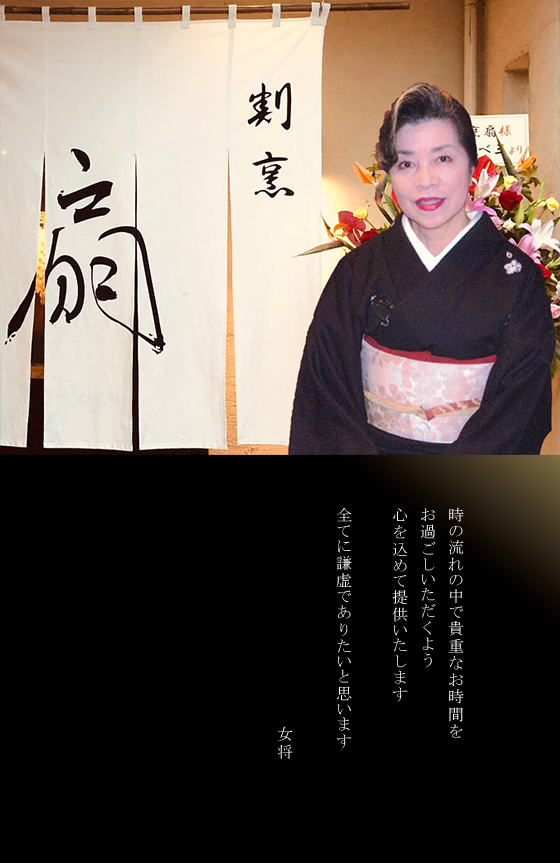 割烹
扇
京扇様
より
時の流れの中で貴重なお時間を
お過ごしいただくよう
心を込めて提供いたします
全てに謙虚でありたいと思います
女将